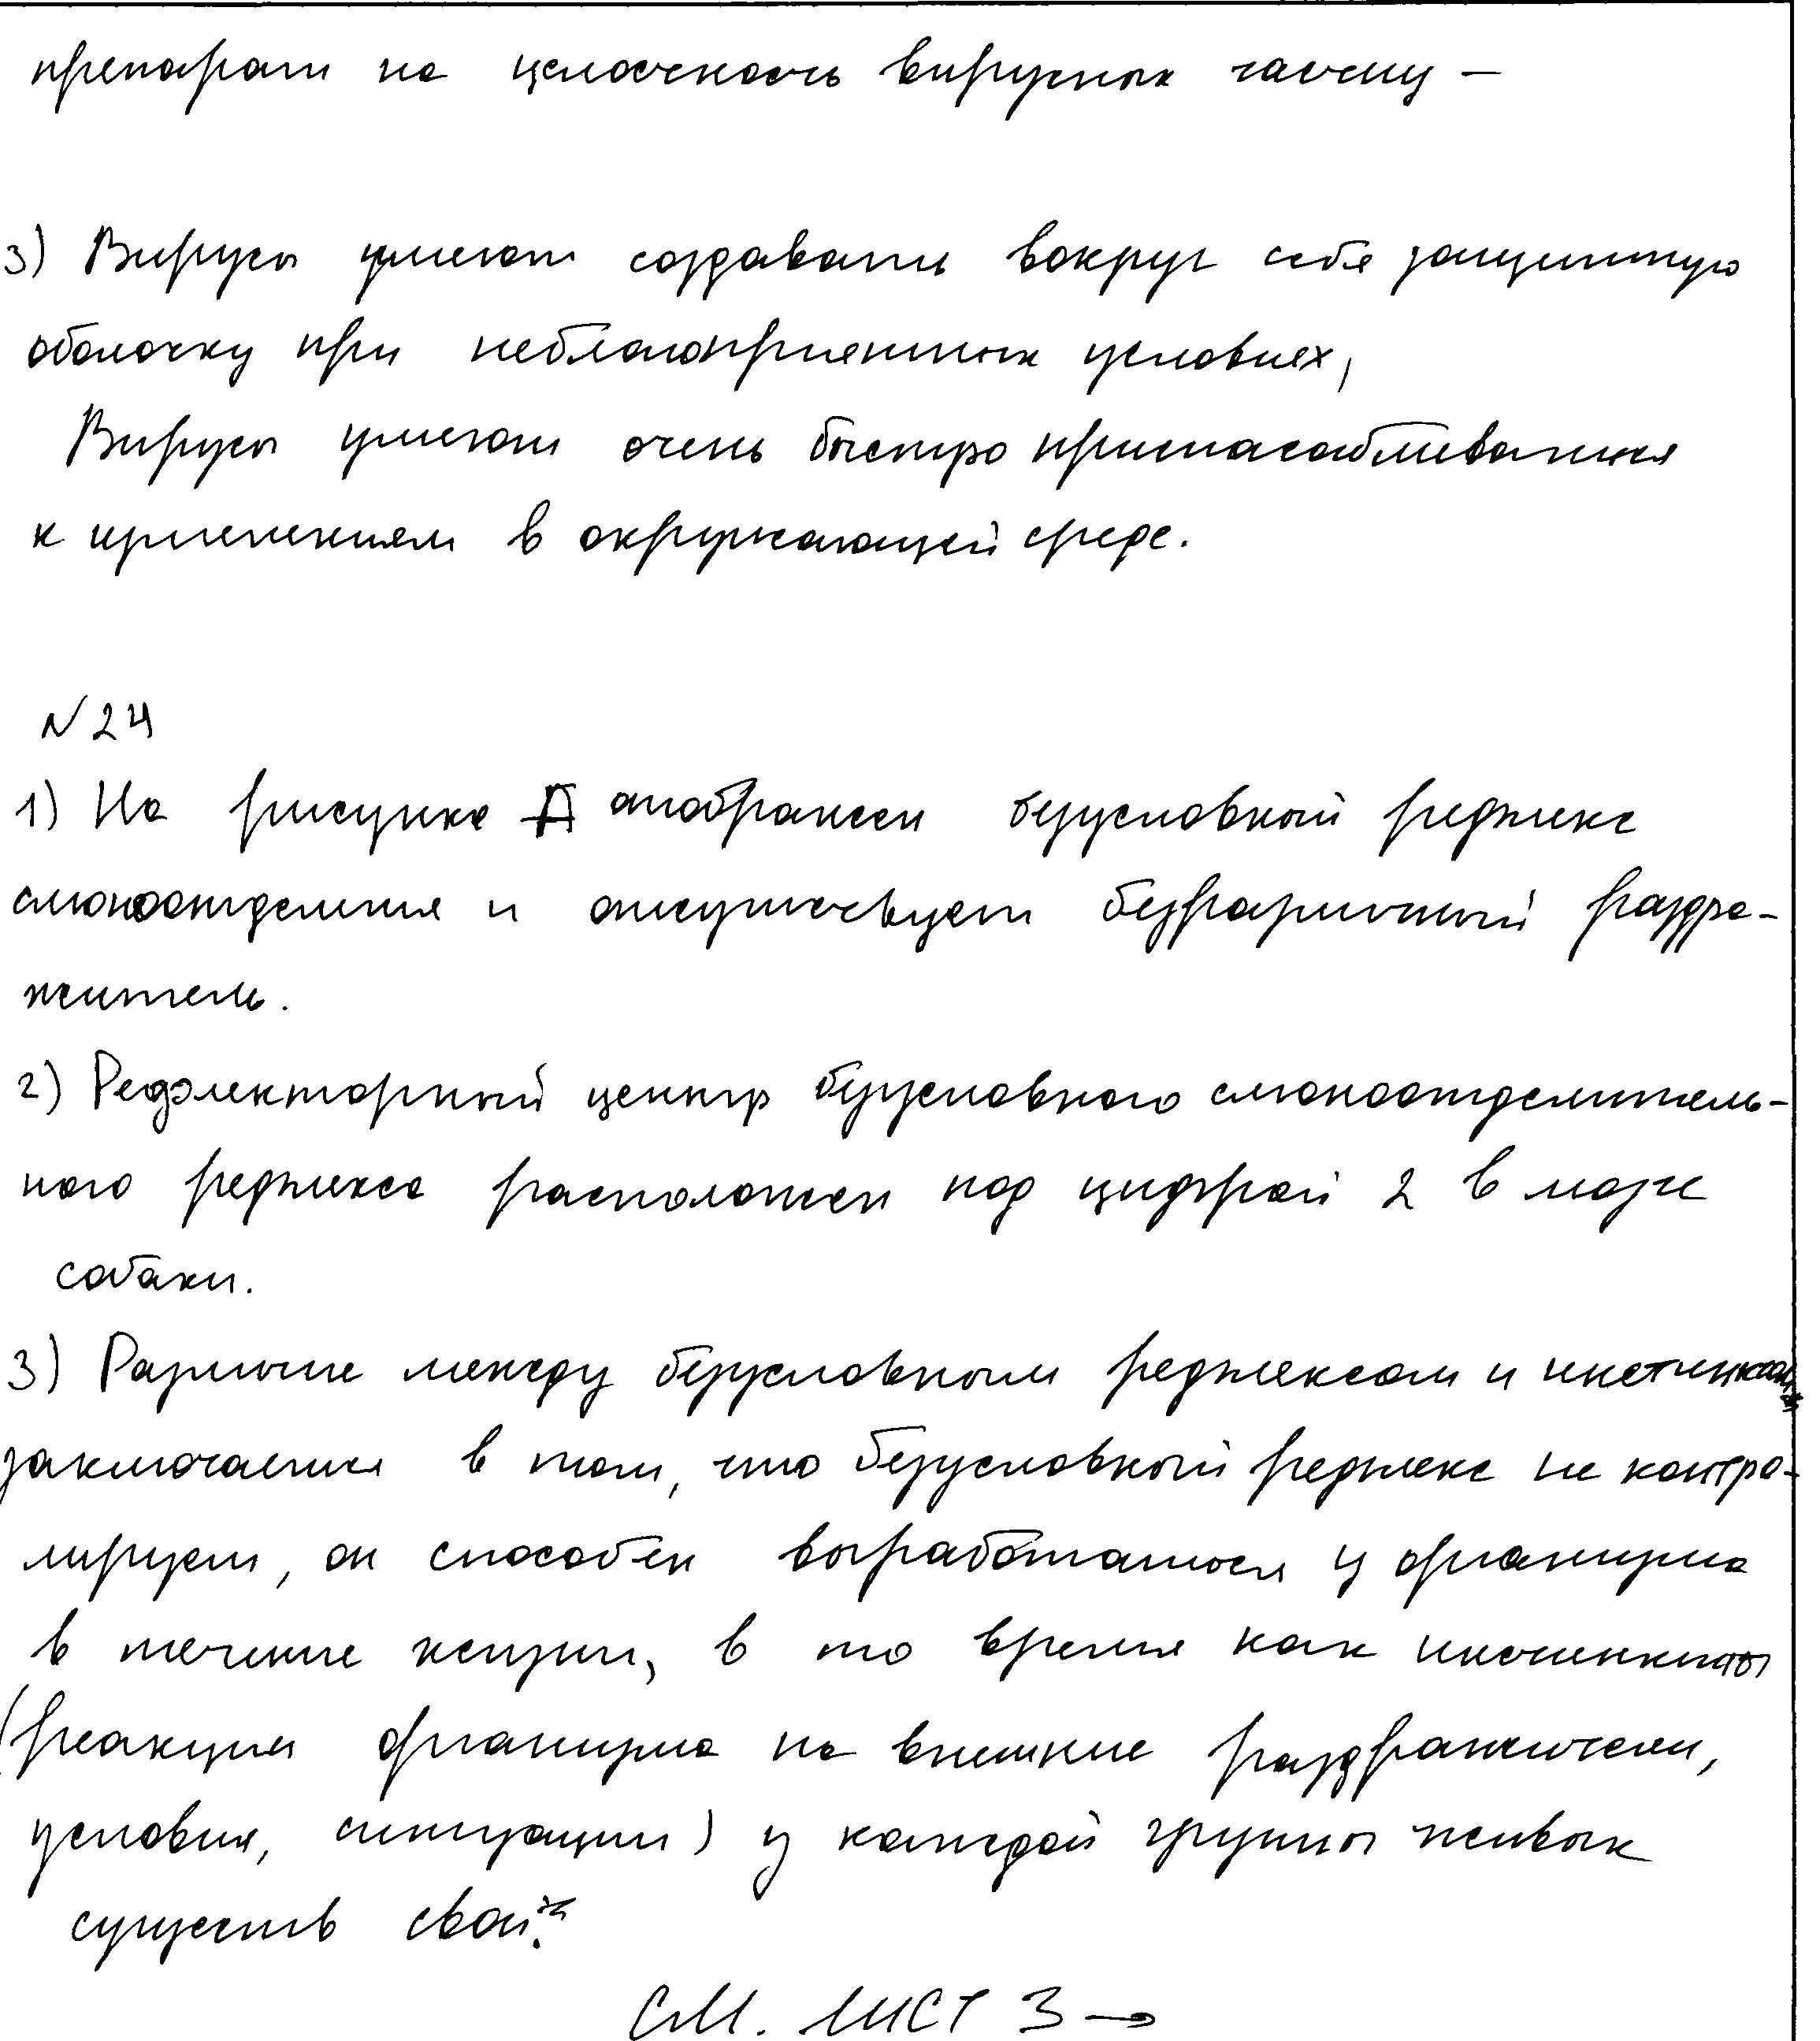 препарат на целостность вирусных частиц –
3) Вирусы умеют создавать вокруг себя защитную
оболочку при неблагоприятных условиях,
Вирусы умеют очень быстро приспасабливаться
к изменениям в окружающей среде.
№ 24
1) На рисунке А изображен безусловный рефлекс
слюноотделения и отсутствует безразличный раздра-
житель.
2) Рефлекторный центр безусловного слюноотделитель-
ного рефлекса расположен под цифрой 2 в мозге
собаки.
3) Различие между безусловным рефлексом и инстинктами
заключается в том, что безусловный рефлекс не контро-
лируем, он способен выработаться у организма
в течение жизни, в то время как инстинкты
(реакция организма на внешние раздражители,
условия, ситуации) у каждой группы живых
существ свои.
СМ. ЛИСТ 3 →